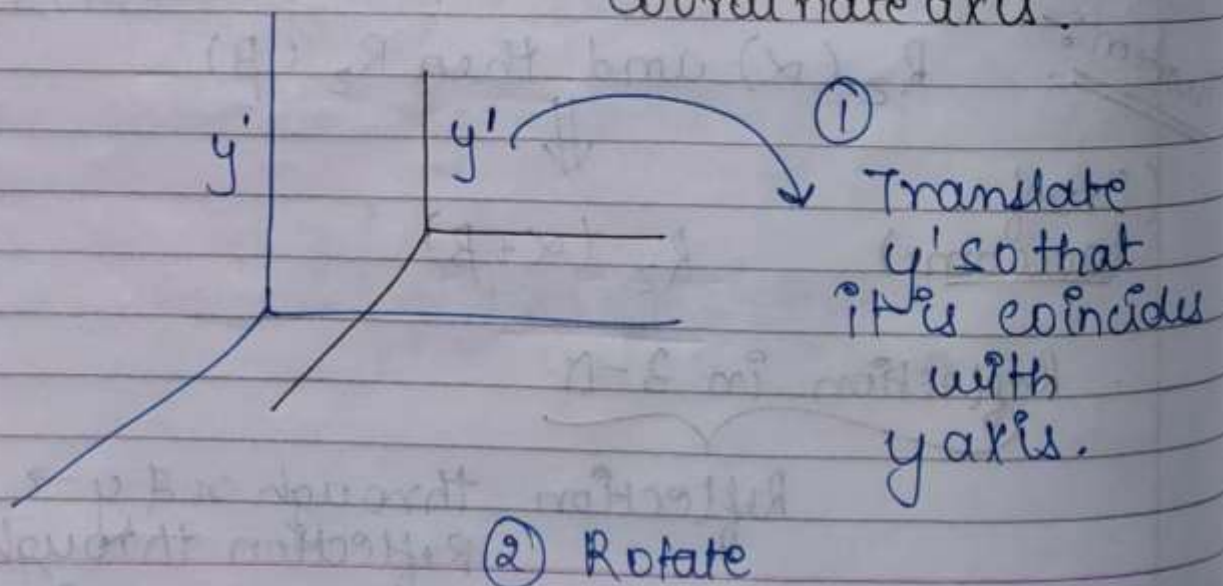 coordinate axis.
y'
y'
①
Translate
y' so that
it is coincides
with
y axis.
② Rotate